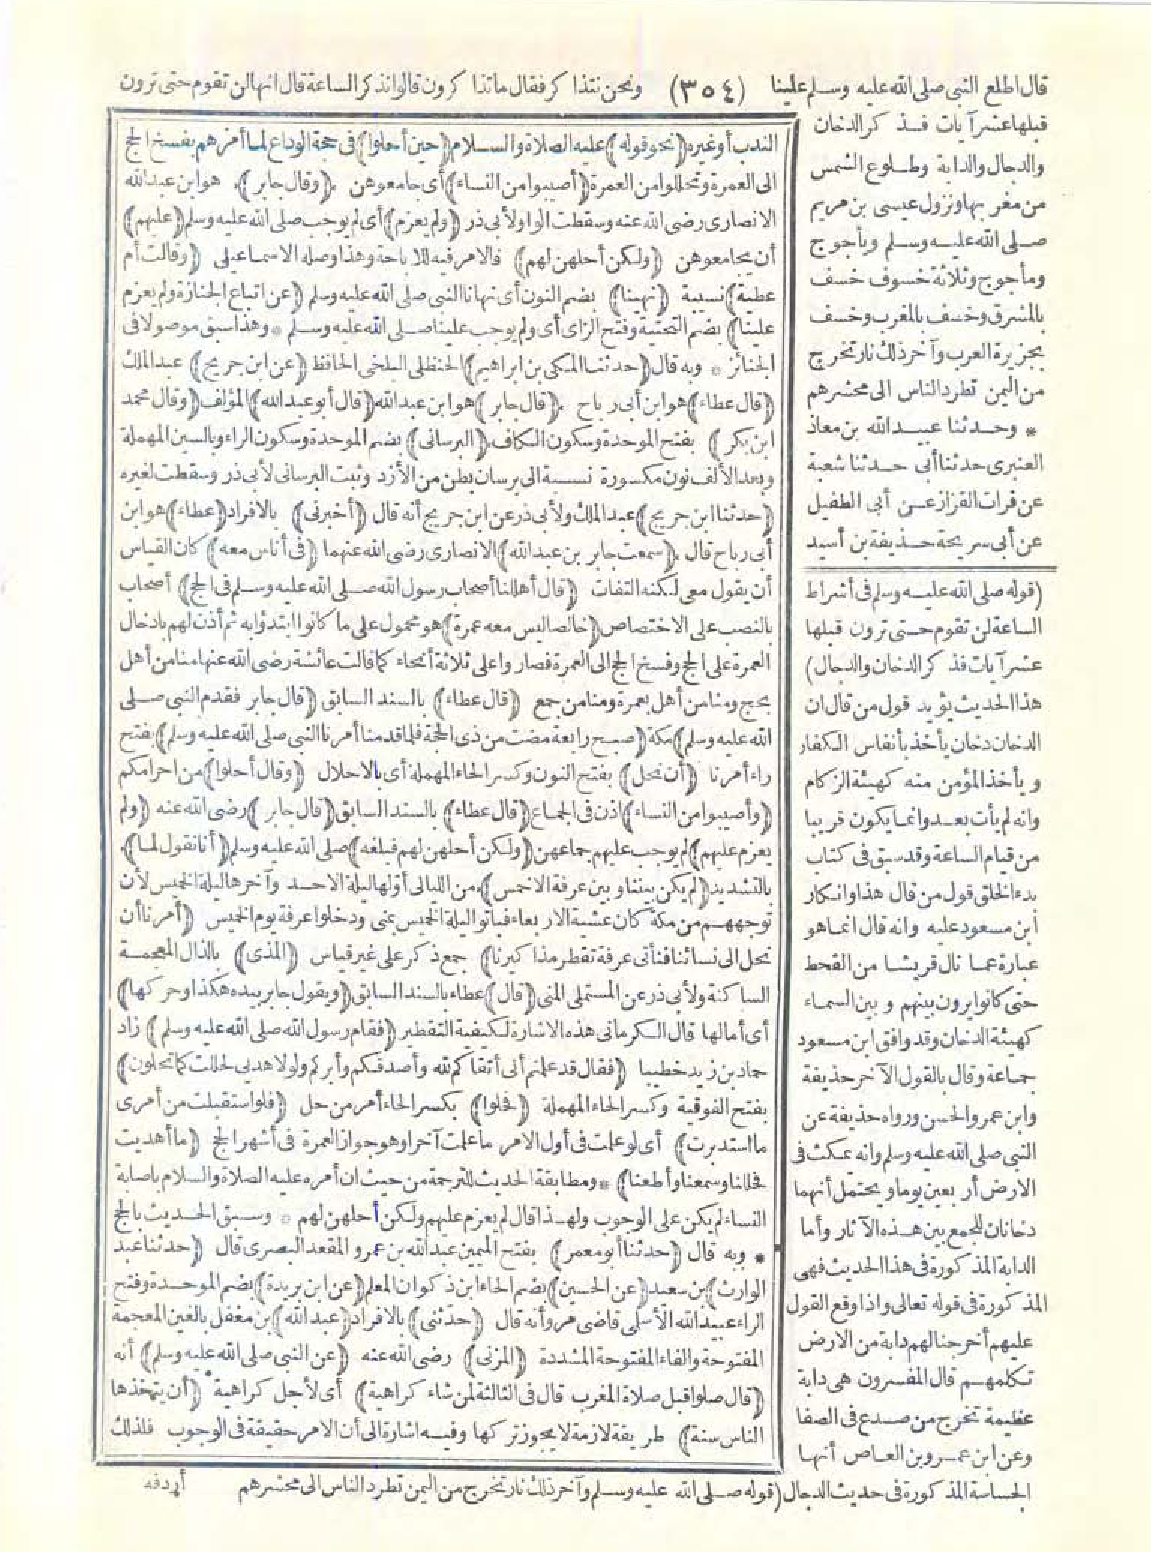 قال اطلع النبي صلى الله عليه وسلم علينا (٣٥٤) ونحن نتذاكر فقال ماتذاكرون قالوا نذكر الساعة قال انها لن تقوم حتى ترون
قبلها عشر آيات فذكر الدخان
والدجال والدابة وطلوع الشمس
من مغربها ونزول عيسى بن مريم
صلى الله عليه وسلم ويأجوج
ومأجوج وثلاثة خسوف خسف
بالمشرق وخسف بالمغرب وخسف
بجزيرة العرب وآخر ذلك نار تخرج
من اليمن تطرد الناس الى محشرهم
* وحدثنا عبيد الله بن معاذ
العنبرى حدثنا أبي حدثنا شعبة
عن فرات القزاز عن أبي الطفيل
عن أبي سريحة حذيفة بن أسيد
(قوله صلى الله عليه وسلم فى أشراط
الساعة لن تقوم حتى ترون قبلها
عشر آيات فذكر الدخان والدجال)
هذا الحديث يؤيد قول من قال ان
الدخان دخان يأخذ بأنفاس الكفار
ويأخذ المؤمن منه كهيئة الزكام
وانه لم يأت بعد وانما يكون قريبا
من قيام الساعة وقد سبق فى كتاب
بدء الخلق قول من قال هذا وانكار
ابن مسعود عليه وانه قال انما هو
عبارة عما نال قريشا من القحط
حتى كانوا يرون بينهم وبين السماء
كهيئة الدخان وقد وافق ابن مسعود
جماعة وقال بالقول الآخر حذيفة
وابن عمر والحسن ورواه حذيفة عن
النبي صلى الله عليه وسلم وانه يمكث فى
الارض أربعين يوما ويحتمل أنهما
دخانان للجمع بين هذه الآثار وأما
الدابة المذكورة فى هذا الحديث فهى
المذكورة فى قوله تعالى واذا وقع القول
عليهم أخرجنا لهم دابة من الارض
تكلمهم قال المفسرون هى دابة
عظيمة تخرج من صدع فى الصفا
وعن ابن عمرو بن العاص أنها
الجساسة المذكورة فى حديث الدجال (قوله صلى الله عليه وسلم وآخر ذلك نار تخرج من اليمن تطرد الناس الى محشرهم
الندب أو غيره (نحو قوله) عليه الصلاة والسلام (حين أحلوا) فى حجة الوداع لما أمرهم بفسخ الحج
الى العمرة وتحللوا من العمرة (أصيبوا من النساء) أى جامعوهن (وقال جابر) هو ابن عبد الله
الانصارى رضى الله عنه وسقطت الواو لأبى ذر (ولم يعزم) أى لم يوجب صلى الله عليه وسلم (عليهم)
أن يجامعوهن (ولكن أحلهن لهم) فالامر فيه للاباحة وهذا وصله الاسماعيلى (وقالت أم
عطية) نسيبة (نهينا) بضم النون أى نهانا النبي صلى الله عليه وسلم (عن اتباع الجنازة ولم يعزم
علينا) بضم التحتية وفتح الزاى أى ولم يوجب علينا صلى الله عليه وسلم * وهذا سبق موصولا فى
الجنائز * وبه قال (حدثنا المكى بن ابراهيم) الحنظلى البلخى الحافظ (عن ابن جريج) عبد الملك
(قال عطاء) هو ابن أبى رباح (قال جابر) هو ابن عبد الله (قال أبو عبد الله) المؤلف (وقال محمد
ابن بكر) بفتح الموحدة وسكون الكاف (البرسانى) بضم الموحدة وسكون الراء وبالسين المهملة
وبعد الألف نون مكسورة نسبة الى برسان بطن من الأزد وثبت البرسانى لأبى ذر وسقطت لغيره
(حدثنا ابن جريج) عبد الملك ولأبى ذر عن ابن جريج أنه قال (أخبرنى) بالافراد (عطاء) هو ابن
أبى رباح قال (سمعت جابر بن عبد الله) الانصارى رضى الله عنهما (فى أناس معه) كان القياس
أن يقول معى لكنه التفات (قال أهللنا أصحاب رسول الله صلى الله عليه وسلم فى الحج) أصحاب
بالنصب على الاختصاص (خالصا ليس معه عمرة) هو محمول على ما كانوا ابتدؤا به ثم أذن لهم بادخال
العمرة على الحج وفسخ الحج الى العمرة فصاروا على ثلاثة أنحاء كما قالت عائشة رضى الله عنها منا من أهل
بحج ومنا من أهل بعمرة ومنا من جمع (قال عطاء) بالسند السابق (قال جابر فقدم النبي صلى
الله عليه وسلم) مكة (صبح رابعة مضت من ذى الحجة فلما قدمنا أمرنا النبي صلى الله عليه وسلم) بفتح
راء أمرنا (أن نحل) بفتح النون وكسر الحاء المهملة أى بالاحلال (وقال أحلوا) من احرامكم
(وأصيبوا من النساء) اذن فى الجماع (قال عطاء) بالسند السابق (قال جابر) رضى الله عنه (ولم
يعزم عليهم) لم يوجب عليهم جماعهن (ولكن أحلهن لهم فبلغه) صلى الله عليه وسلم (أنا نقول لما)
بالتشديد (لم يكن بيننا وبين عرفة الاخمس) من الليالى أولها ليلة الاحد وآخرها ليلة الخميس لأن
توجههم من مكة كان عشية الاربعاء فباتوا ليلة الخميس بمنى ودخلوا عرفة يوم الخميس (أمرنا أن
نحل الى نسائنا فنأتى عرفة تقطر مذاكيرنا) جمع ذكر على غير قياس (المذى) بالذال المعجمة
الساكنة ولأبى ذر عن المستملى المنى (قال) عطاء بالسند السابق (ويقول جابر بيده هكذا وحركها)
أى أمالها قال الكرمانى هذه الاشارة لكيفية التقطير (فقام رسول الله صلى الله عليه وسلم) زاد
حماد بن زيد خطيبا (فقال قد علمتم أنى أتقاكم لله وأصدقكم وأبركم ولولا هديى لحللت كما تحلون)
بفتح الفوقية وكسر الحاء المهملة (فحلوا) بكسر الحاء أمر من حل (فلو استقبلت من أمرى
ما استدبرت) أى لو علمت فى أول الامر ما علمت آخرا وهو جواز العمرة فى أشهر الحج (ما أهديت
فحللنا وسمعنا وأطعنا) * ومطابقة الحديث للترجمة من حيث ان أمره عليه الصلاة والسلام باصابة
النساء لم يكن على الوجوب ولهذا قال لم يعزم عليهم ولكن أحلهن لهم * وسبق الحديث بالحج
* وبه قال (حدثنا أبو معمر) بفتح الميمين عبد الله بن عمرو المقعد البصرى قال (حدثنا عبد
الوارث) بن سعيد (عن الحسين) بضم الحاء ابن ذكوان المعلم (عن ابن بريدة) بضم الموحدة وفتح
الراء عبد الله الأسلمى قاضى مرو أنه قال (حدثنى) بالافراد (عبد الله) بن مغفل بالغين المعجمة
المفتوحة والفاء المفتوحة المشددة (المزنى) رضى الله عنه (عن النبي صلى الله عليه وسلم) أنه
(قال صلوا قبل صلاة المغرب قال فى الثالثة لمن شاء كراهية) أى لأجل كراهية (أن يتخذها
الناس سنة) طريقة لازمة لا يجوز تركها وفيه اشارة الى أن الامر حقيقة فى الوجوب فلذلك
أردفه